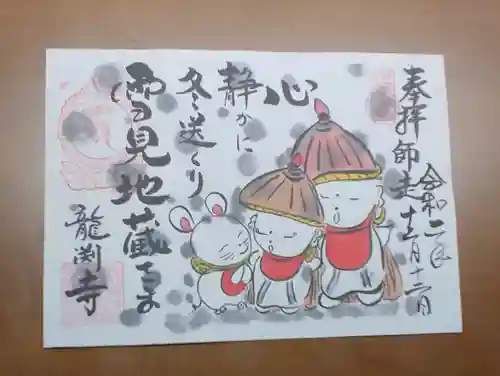 奉拝師走十二月十二日
令和二年
心
静かに
冬送くり
雪見地蔵さま
龍渕寺